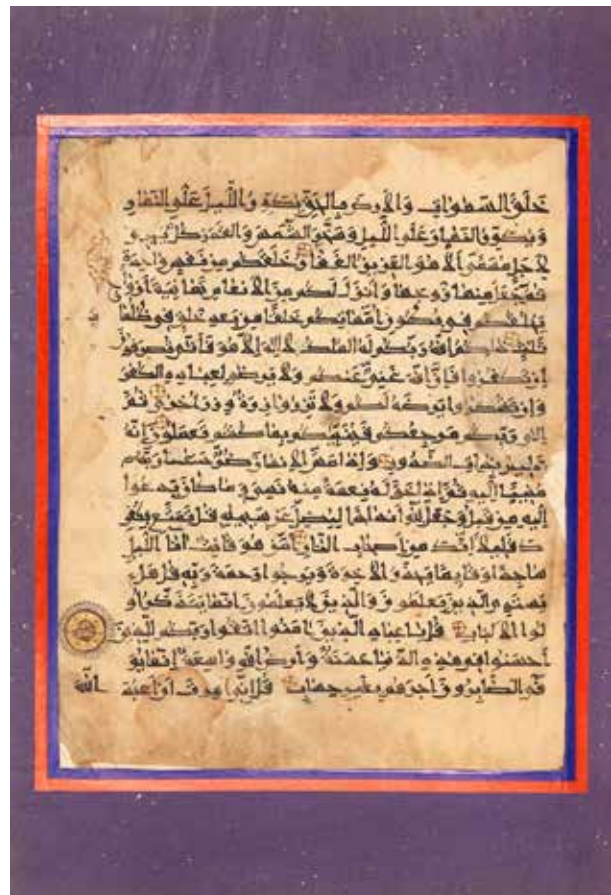 خلق السموات والارض بالحق يكور الليل على النهار
ويكور النهار على الليل وسخر الشمس والقمر كل يجري
لاجل مسمى الا هو العزيز الغفار خلقكم من نفس واحدة
ثم جعل منها زوجها وانزل لكم من الانعام ثمانية ازواج
يخلقكم في بطون امهاتكم خلقا من بعد خلق في ظلمات
ثلاث ذلكم الله ربكم له الملك لا اله الا هو فأنى تصرفون
ان تكفروا فان الله غني عنكم ولا يرضى لعباده الكفر
وان تشكروا يرضه لكم ولا تزر وازرة وزر اخرى ثم
الى ربكم مرجعكم فينبئكم بما كنتم تعملون انه
عليم بذات الصدور واذا مس الانسان ضر دعا ربه
منيبا اليه ثم اذا خوله نعمة منه نسي ما كان يدعوا
اليه من قبل وجعل لله اندادا ليضل عن سبيله قل تمتع بكفر
ك قليلا انك من اصحاب النار امن هو قانت اناء الليل
ساجدا وقائما يحذر الاخرة ويرجوا رحمة ربه قل هل
يستوي الذين يعلمون والذين لا يعلمون انما يتذكر او
لوا الالباب قل يا عباد الذين امنوا اتقوا ربكم للذين
احسنوا في هذه الدنيا حسنة وارض الله واسعة انما يو
فى الصابرون اجرهم بغير حساب قل اني امرت ان اعبد الله